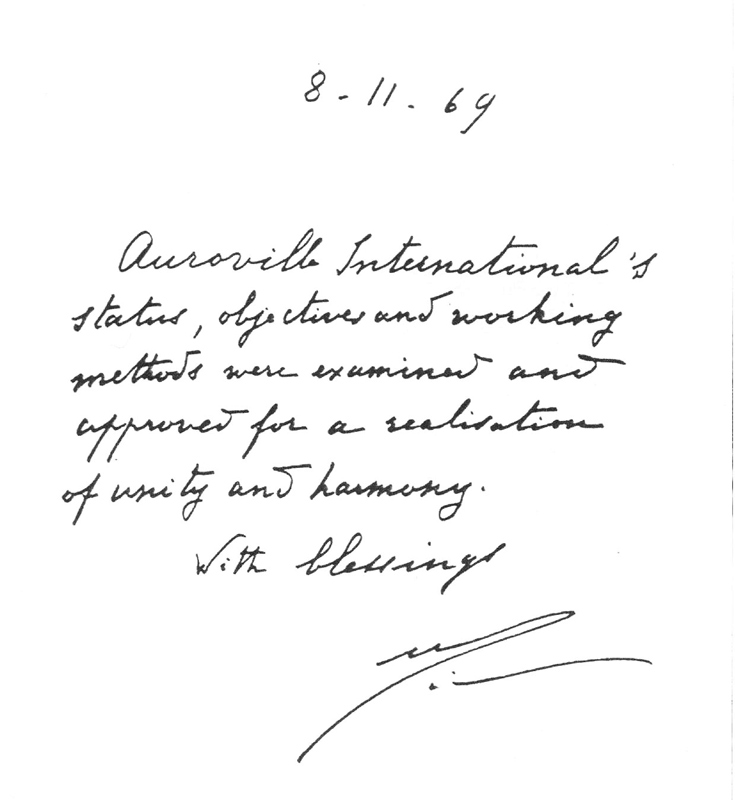 8-11-69
Auroville International's
status, objectives and working
methods were examined and
approved for a realisation
of unity and harmony.
With blessings